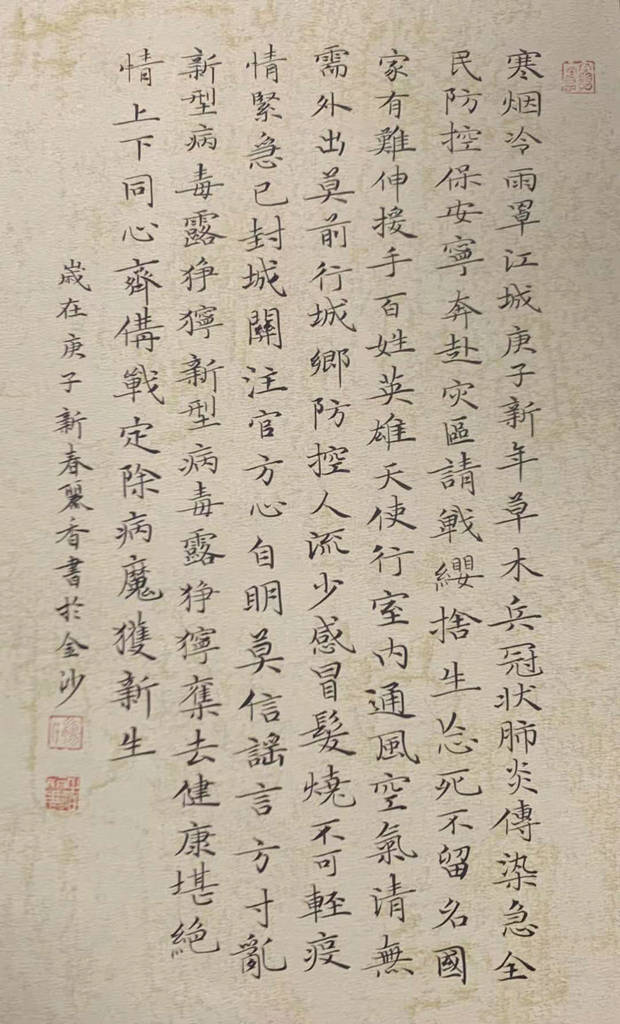 寒烟冷雨罩江城庚子新年草木兵冠状肺炎傳染急全
民防控保安寧奔赴灾區請戰纓捨生忘死不留名國
家有難伸接手百姓英雄天使行室内通風空氣清無
需外出莫前行城鄉防控人流少感冒髮燒不可輕疫
情緊急已封城關注官方心自明莫信謡言方寸亂
新型病毒露狰獰新型病毒露狰獰奪去健康堪絶
情上下同心齊備戰定除病魔獲新生
歲在庚子新春麗香書於金沙